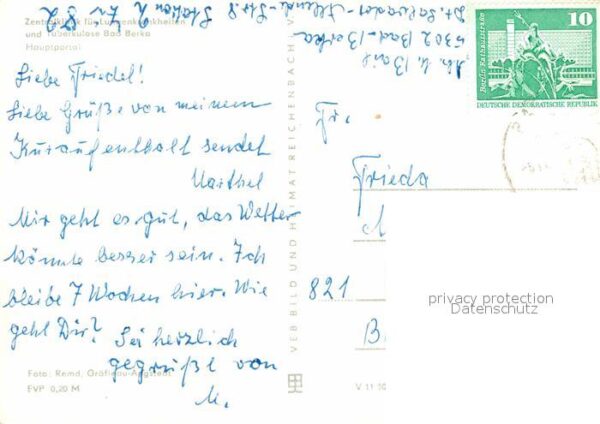 Zentralklinik für Lungenkrankheiten
und Tuberkulose Bad Berka
Hauptportal
Liebe Friedel!
Liebe Grüße von meinem
Kuraufenthalt sendet
Mir geht es gut, das Wetter
könnte besser sein. Ich
bleibe 7 Wochen hier. Wie
geht Dir? Sei herzlich
gegrüßt von
M.
Foto: Remd, Gräfenau-Angstedt
EVP 0,20 M
VEB BILD UND HEIMAT REICHENBACH
V 11 10
5302 Bad-Berka
Dr. Salvador-Allende-Str. 8
Station 2
Fr.
Frieda
821
B
10
Berlin Rathausstraße
DEUTSCHE DEMOKRATISCHE REPUBLIK
privacy protection
Datenschutz